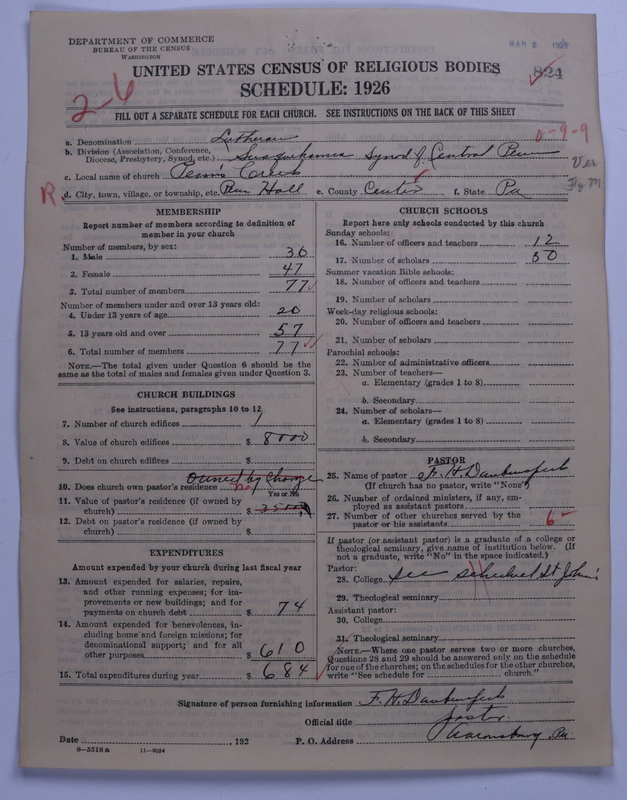 DEPARTMENT OF COMMERCE
BUREAU OF THE CENSUS
WASHINGTON
MAR 2 192
UNITED STATES CENSUS OF RELIGIOUS BODIES
824
SCHEDULE: 1926
2-6
FILL OUT A SEPARATE SCHEDULE FOR EACH CHURCH. SEE INSTRUCTIONS ON THE BACK OF THIS SHEET
a. Denomination Lutheran
0-9-9
b. Division (Association, Conference, Diocese, Presbytery, Synod, etc.) Susquehanna Synod of Central Penn
c. Local name of church Penns Creek
Ver
R
d. City, town, village, or township, etc. Penn Hall e. County Centre f. State Pa
MEMBERSHIP
Report number of members according to definition of
member in your church
Number of members, by sex:
1. Male 30
2. Female 47
3. Total number of members 77
Number of members under and over 13 years old:
4. Under 13 years of age 20
5. 13 years old and over 57
6. Total number of members 77
NOTE.—The total given under Question 6 should be the
same as the total of males and females given under Question 3.
CHURCH BUILDINGS
See instructions, paragraphs 10 to 12
7. Number of church edifices 1
8. Value of church edifices $ 8000
9. Debt on church edifices $
owned by Charge
10. Does church own pastor's residence no
Yes or No
11. Value of pastor's residence (if owned by
church) $ 3500
12. Debt on pastor's residence (if owned by
church) $
EXPENDITURES
Amount expended by your church during last fiscal year
13. Amount expended for salaries, repairs,
and other running expenses; for im-
provements or new buildings; and for
payments on church debt $ 74
14. Amount expended for benevolences, in-
cluding home and foreign missions; for
denominational support; and for all
other purposes $ 610
15. Total expenditures during year $ 684
CHURCH SCHOOLS
Report here only schools conducted by this church
Sunday schools:
16. Number of officers and teachers 12
17. Number of scholars 50
Summer vacation Bible schools:
18. Number of officers and teachers
19. Number of scholars
Week-day religious schools:
20. Number of officers and teachers
21. Number of scholars
Parochial schools:
22. Number of administrative officers
23. Number of teachers—
a. Elementary (grades 1 to 8)
b. Secondary
24. Number of scholars—
a. Elementary (grades 1 to 8)
b. Secondary
PASTOR
25. Name of pastor F. H. Daubenspeck
(If church has no pastor, write "None")
26. Number of ordained ministers, if any, em-
ployed as assistant pastors
27. Number of other churches served by the
pastor or his assistants 6
If pastor (or assistant pastor) is a graduate of a college or
theological seminary, give name of institution below. (If
not a graduate, write "No" in the space indicated.)
Pastor:
28. College see schedule St Johns
29. Theological seminary
Assistant pastor:
30. College
31. Theological seminary
NOTE.—Where one pastor serves two or more churches,
Questions 28 and 29 should be answered only on the schedule
for one of the churches; on the schedules for the other churches,
write "See schedule for church."
Signature of person furnishing information F. H. Daubenspeck
Official title pastor
Date , 192 P. O. Address Aaronsburg, Pa
8—5518a 11—9084